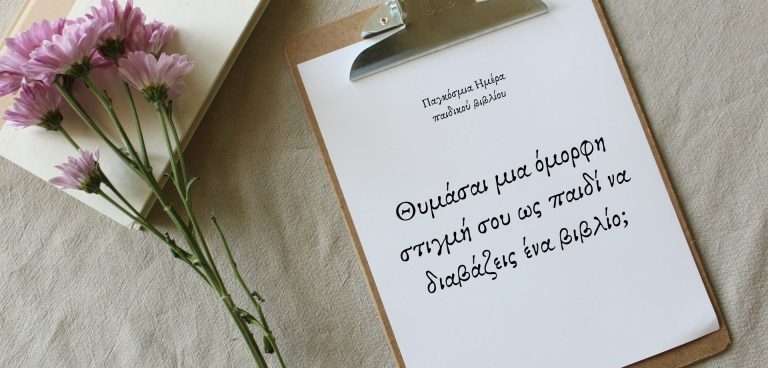 Παγκόσμια Ημέρα
παιδικού βιβλίου
Θυμάσαι μια όμορφη
στιγμή σου ως παιδί να
διαβάζεις ένα βιβλίο;